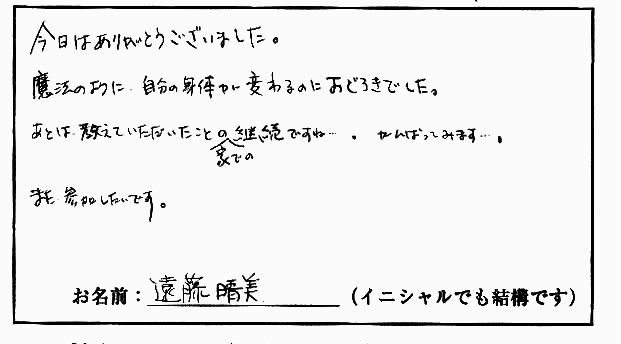 今日はありがとうございました。
魔法のように自分の身体が変わるのにおどろきでした。
あとは教えていただいたことの家での継続ですね…。がんばってみます…。
また参加したいです。
お名前：遠藤晴美（イニシャルでも結構です）